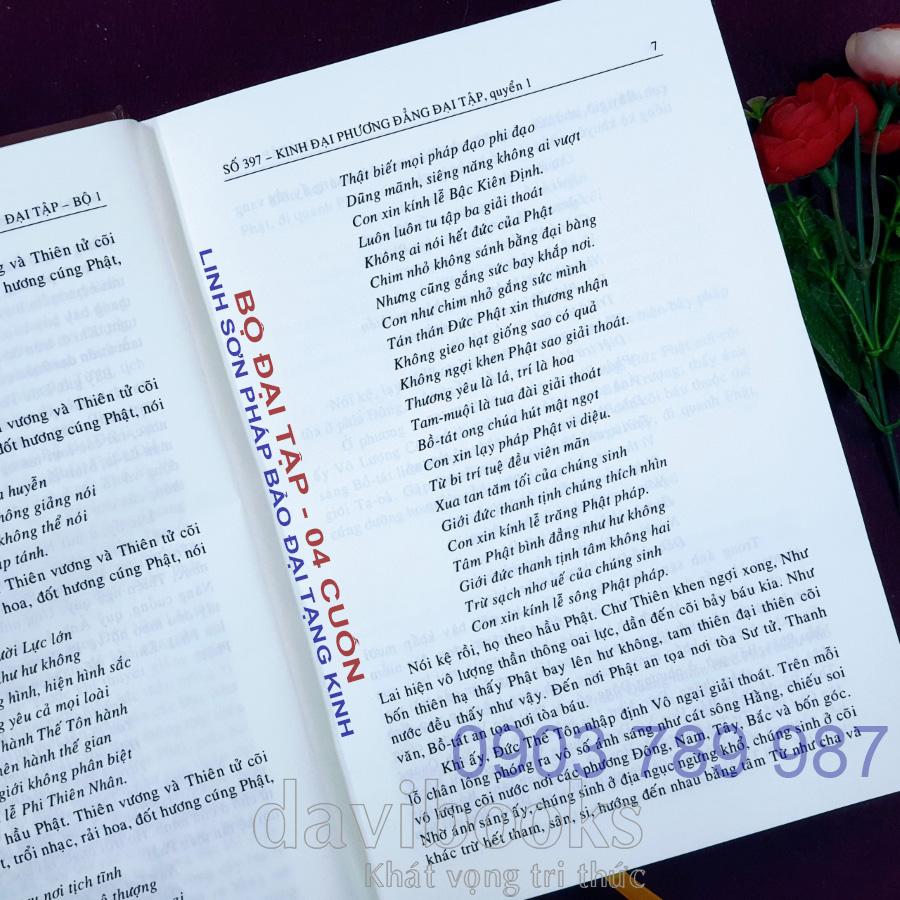 ĐẠI TẬP – BỘ 1
và Thiên tử cõi
hương cúng Phật,
vương và Thiên tử cõi
đốt hương cúng Phật, nói
huyễn
không giảng nói
không thể nói
tánh.
Thiên vương và Thiên tử cõi
hoa, đốt hương cúng Phật, nói
Lực lớn
như hư không
hình, hiện hình sắc
yêu cả mọi loài
hành Thế Tôn hành
hành thế gian
giới không phân biệt
lễ Phi Thiên Nhân.
hầu Phật. Thiên vương và Thiên tử cõi
trổi nhạc, rải hoa, đốt hương cúng Phật,
nơi tịch tĩnh
thượng
7
SỐ 397 – KINH ĐẠI PHƯƠNG ĐẲNG ĐẠI TẬP, quyển 1
Thật biết mọi pháp đạo phi đạo
Dũng mãnh, siêng năng không ai vượt
Con xin kính lễ Bậc Kiên Định.
Luôn luôn tu tập ba giải thoát
Không ai nói hết đức của Phật
Chim nhỏ không sánh bằng đại bàng
Nhưng cũng gắng sức bay khắp nơi.
Con như chim nhỏ gắng sức mình
Tán thán Đức Phật xin thương nhận
Không gieo hạt giống sao có quả
Không ngợi khen Phật sao giải thoát.
Thương yêu là lá, trí là hoa
Tam-muội là tua đài giải thoát
Bồ-tát ong chúa hút mật ngọt
Con xin lạy pháp Phật vi diệu.
Từ bi trí tuệ đều viên mãn
Xua tan tăm tối của chúng sinh
Giới đức thanh tịnh chúng thích nhìn
Con xin kính lễ trăng Phật pháp.
Tâm Phật bình đẳng như hư không
Giới đức thanh tịnh tâm không hai
Trừ sạch nhơ uế của chúng sinh
Con xin kính lễ sông Phật pháp.
Nói kệ rồi, họ theo hầu Phật. Chư Thiên khen ngợi xong, Như
Lai hiện vô lượng thần thông oai lực, dần đến cõi bảy báu kia. Như
bốn thiên hạ thấy Phật bay lên hư không, tam thiên đại thiên cõi
nước đều thấy như vậy. Đến nơi Phật an tọa nơi tòa Sư tử, Thanh
văn, Bồ-tát an tọa nơi tòa báu.
Khi ấy, Đức Thế Tôn nhập định Vô ngại giải thoát. Trên mỗi
lỗ chân lông phóng ra vô số ánh sáng như cát sông Hằng, chiếu soi
vô lượng cõi nước nơi các phương Đông, Nam, Tây, Bắc và bốn góc.
Nhờ ánh sáng ấy, chúng sinh ở địa ngục ngừng khổ, chúng sinh ở cõi
khác trừ hết tham, sân, si, hướng đến nhau bằng tâm Từ như cha và
BỘ ĐẠI TẬP - 04 CUỐN
LINH SƠN PHÁP BẢO ĐẠI TẠNG KINH
0903 789 987
davibooks
Khát vọng tri thức